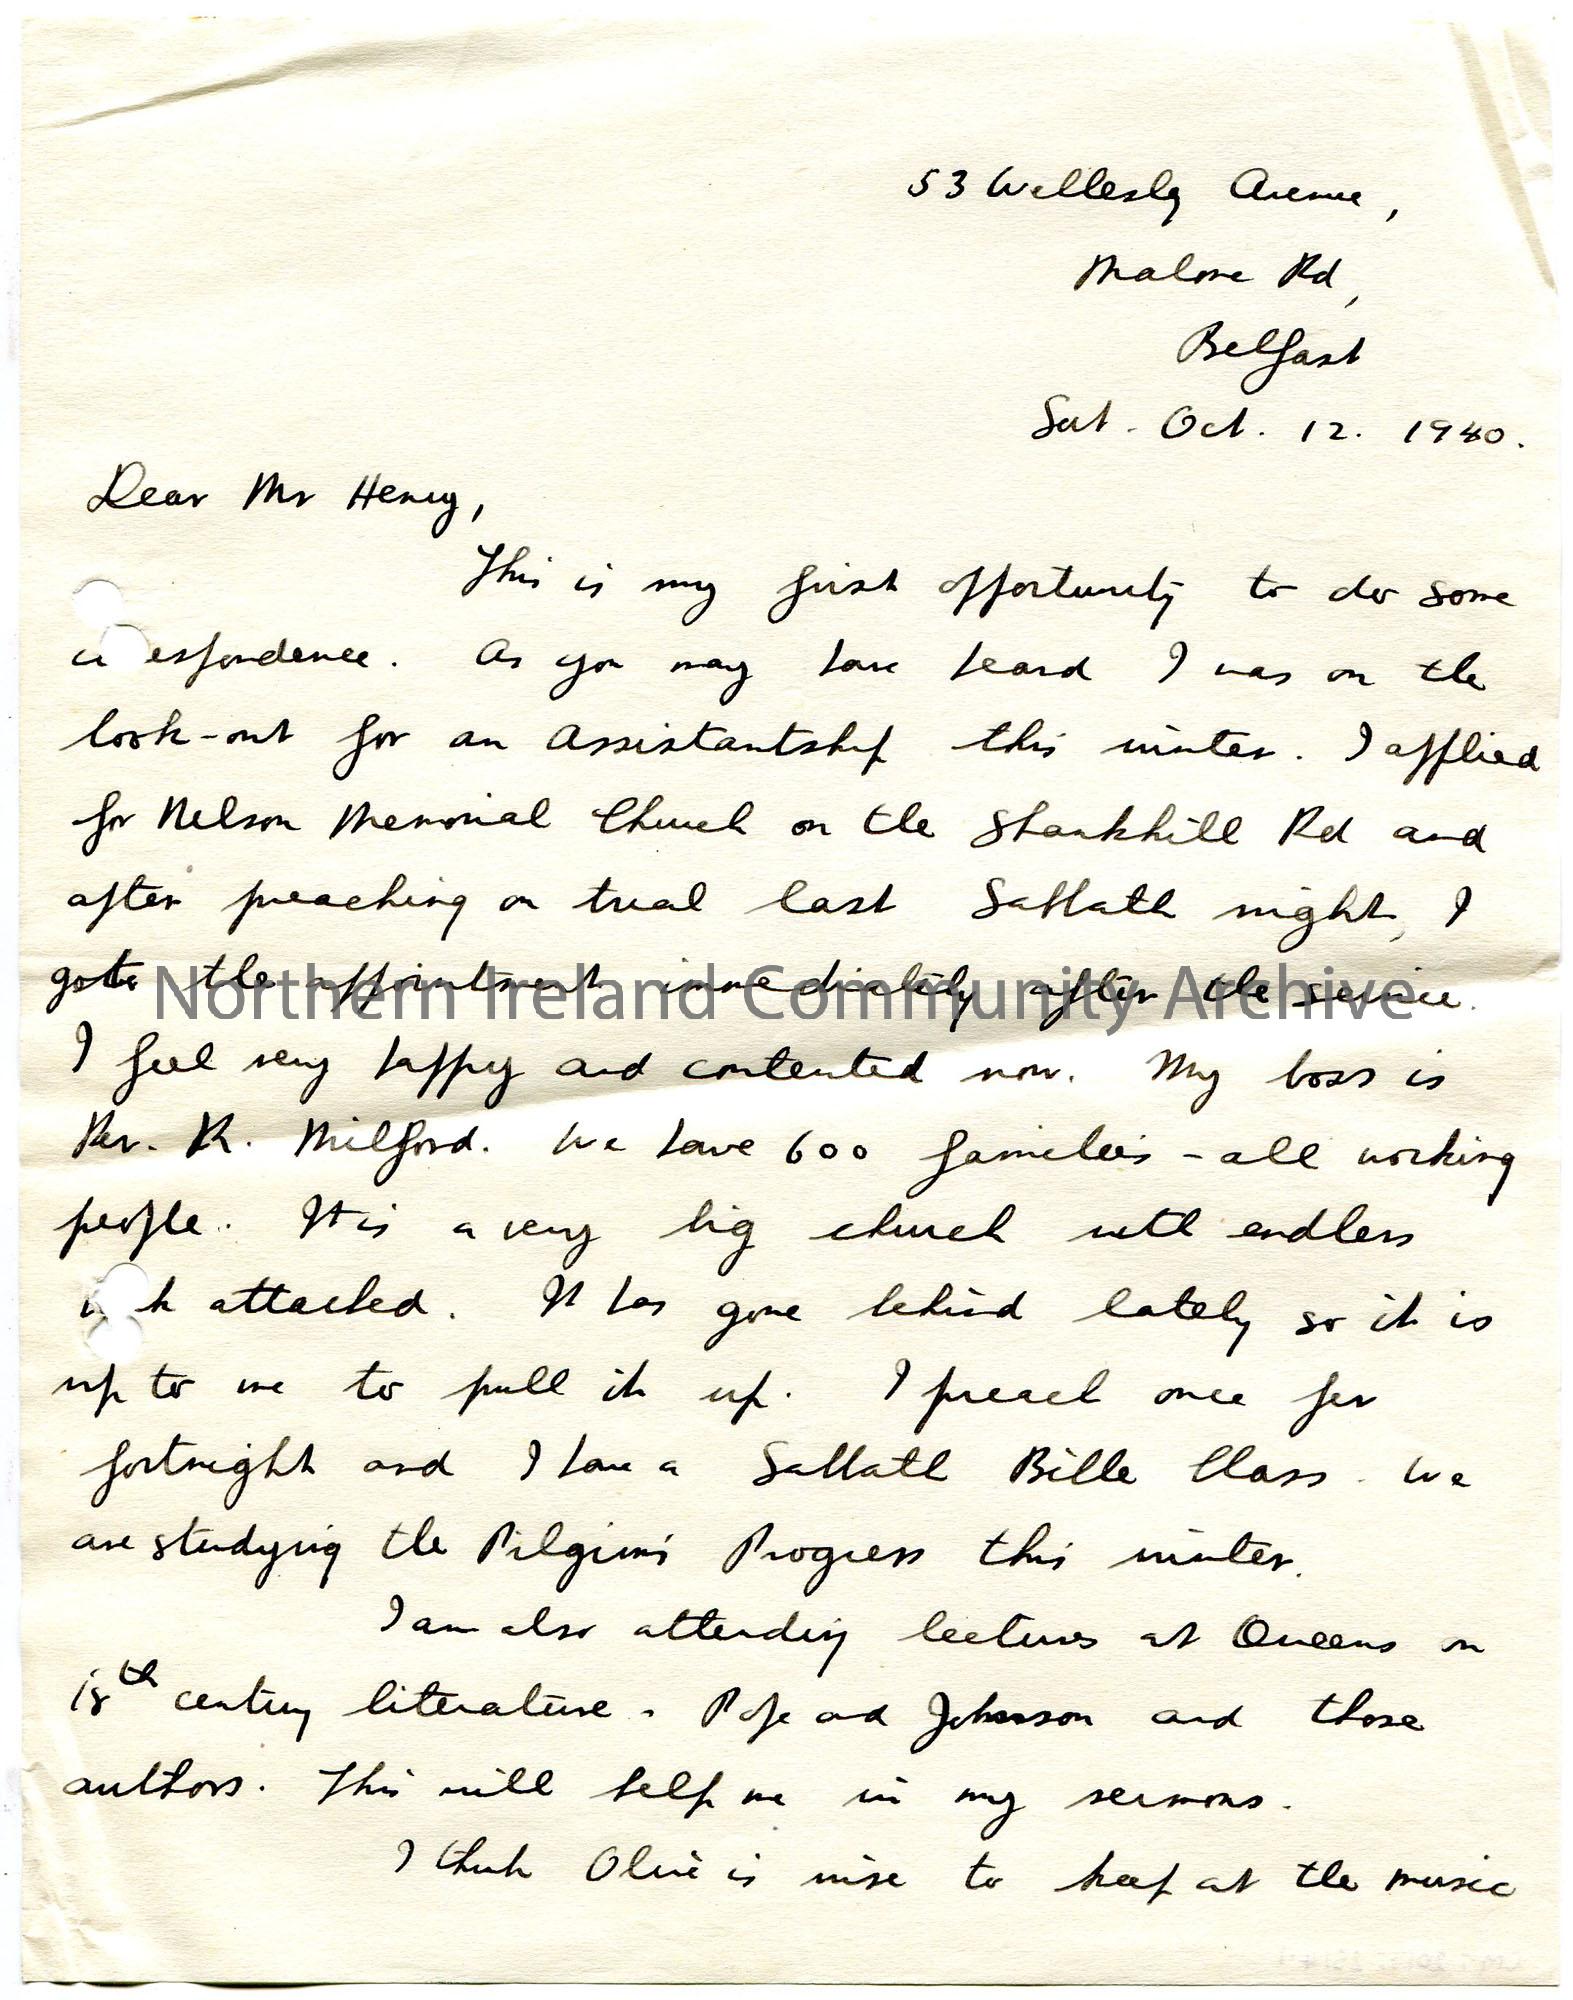 53 Wellesly Avenue,
Malone Rd,
Belfast
Sat. Oct. 12. 1940.
Dear Mr Henry,
This is my first opportunity to do some
co espondence. As you may have heard I was on the
look-out for an assistantship this winter. I applied
for Nelson Memorial Church on the Shankhill Rd and
after preaching on trial last Sabbath night, I
got the appointment immediately after the service.
Northern Ireland Community Archive
I feel very happy and contented now. My boss is
Rev. R. Milford. We have 600 families - all working
people. It is a very big church with endless
w k attached. It has gone behind lately so it is
up to me to pull it up. I preach once per
fortnight and I have a Sabbath Bible Class. We
are studying the Pilgrim's Progress this winter.
I am also attending lectures at Queens on
18th century literature - Pope and Johnson and those
authors. This will help me in my sermons.
I think Olive is wise to keep at the music